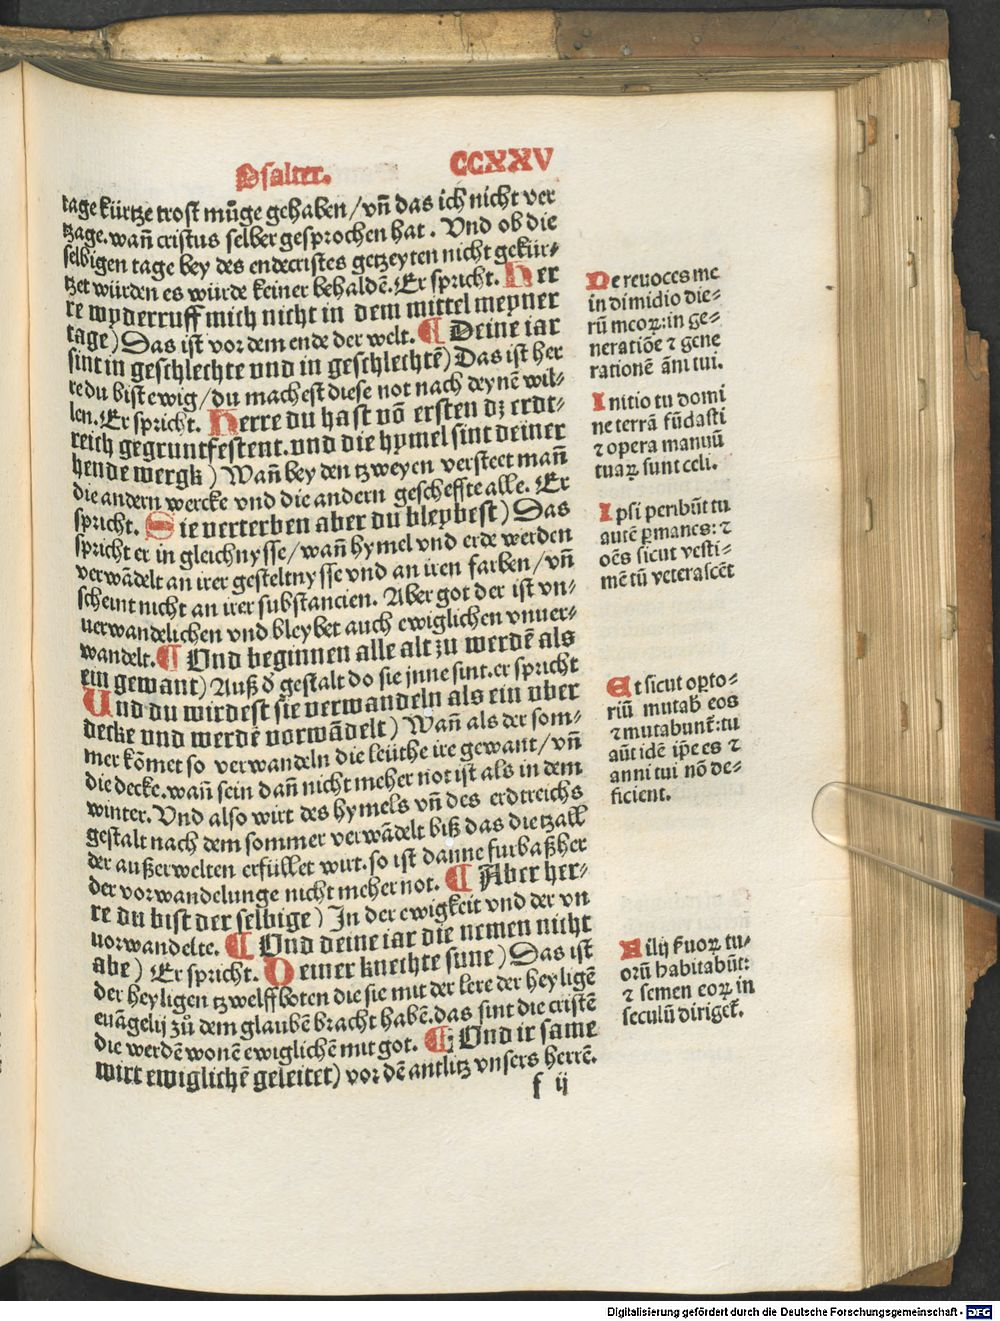 Psalter. CCXXV
tage kürtze trost mu̇ge gehaben / vn̄ das ich nicht ver
tzage. wan̄ cristus selber gesprochen hat. Vnd ob die
selbigen tage bey des endecristes getzeyten nicht gekür⸗
tzet würden es würde keiner behaldē. Er spricht. Her
re wyderruff mich nicht in dem mittel meyner
tage) Das ist vor dem ende der welt. ¶ Deine iar
sint in geschlechte vnd in geschlechtē) Das ist her
re du bist ewig / du machest diese not nach deynē wil⸗
len. Er spricht. Herre du hast vō ersten dz erdt⸗
reich gegruntfestent. vnd die hymel sint deiner
hende wergk) Wan̄ bey den tzweyen versteet man̄
die andern wercke vnd die andern gescheffte alle. Er
spricht. Sie verterben aber du bleybest) Das
spricht er in gleichnysse / wan̄ hymel vnd erde werden
verwādelt an irer gesteltnysse vnd an iren farben / vn̄
scheint nicht an irer substancien. Aber got der ist vn⸗
uerwandelichen vnd bleybet auch ewiglichen vnuer⸗
wandelt. ¶ Vnd beginnen alle alt zu werdē als
ein gewant) Auß d᷑ gestalt do sie jnne sint. er spricht
Und du wirdest sie verwandeln als ein vber
decke vnd werdē vorwādelt) Wan̄ als der som⸗
mer kōmet so verwandeln die leüthe ire gewant / vn̄
die decke. wan̄ sein dan̄ nicht meher not ist als in dem
winter. Vnd also wirt des hymels vn̄ des erdtreichs
gestalt nach dem sommer verwādelt biß das die tzall
der außerwelten erfüllet wirt. so ist danne furbaßher
der vorwandelunge nicht meher not. ¶ Aber her⸗
re du bist der selbige) In der ewigkeit vnd der vn
uorwandelte. ¶ Vnd deine iar die nemen nicht
abe) Er spricht. Deiner knechte sune) Das ist
der heyligen tzwelffboten die sie mit der lere der heyligē
euāgelij zů dem glaubē bracht habē. das sint die cristē
die werdē wonē ewiglichē mit got. ¶ Vnd ir same
wirt ewiglichē geleitet) vor dē antlitz vnsers herrē.
f ij
Ne reuoces me
in dimidio die⸗
rū meoꝝ: in ge⸗
neratiōe ⁊ gene
rationē āni tui.
Initio tu domi
ne terrā fūdasti
⁊ opera manuū
tuaꝝ sunt celi.
Ipsi peribūt tu
autē ꝑmanes: ⁊
oēs sicut vesti⸗
mētū veterascēt
Et sicut oꝑto⸗
riū mutab᷑ eos
⁊ mutabunt᷑: tu
aūt idē ip̄e es ⁊
anni tui nō de⸗
ficient.
Filij ẜuoꝝ tu⸗
orū habitabūt:
⁊ semen eoꝝ in
seculū diriget᷑.
Digitalisierung gefördert durch die Deutsche Forschungsgemeinschaft - DFG